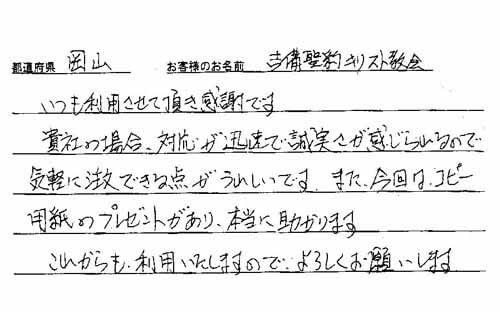 都道府県 岡山 お客様のお名前 吉備聖約キリスト教会
いつも利用させて頂き感謝です
貴社の場合、対応が迅速で誠実さが感じられるので
気軽に注文できる点がうれしいです。また、今回は、コピー
用紙のプレゼントがあり、本当に助かります
これからも、利用いたしますので、よろしくお願いします